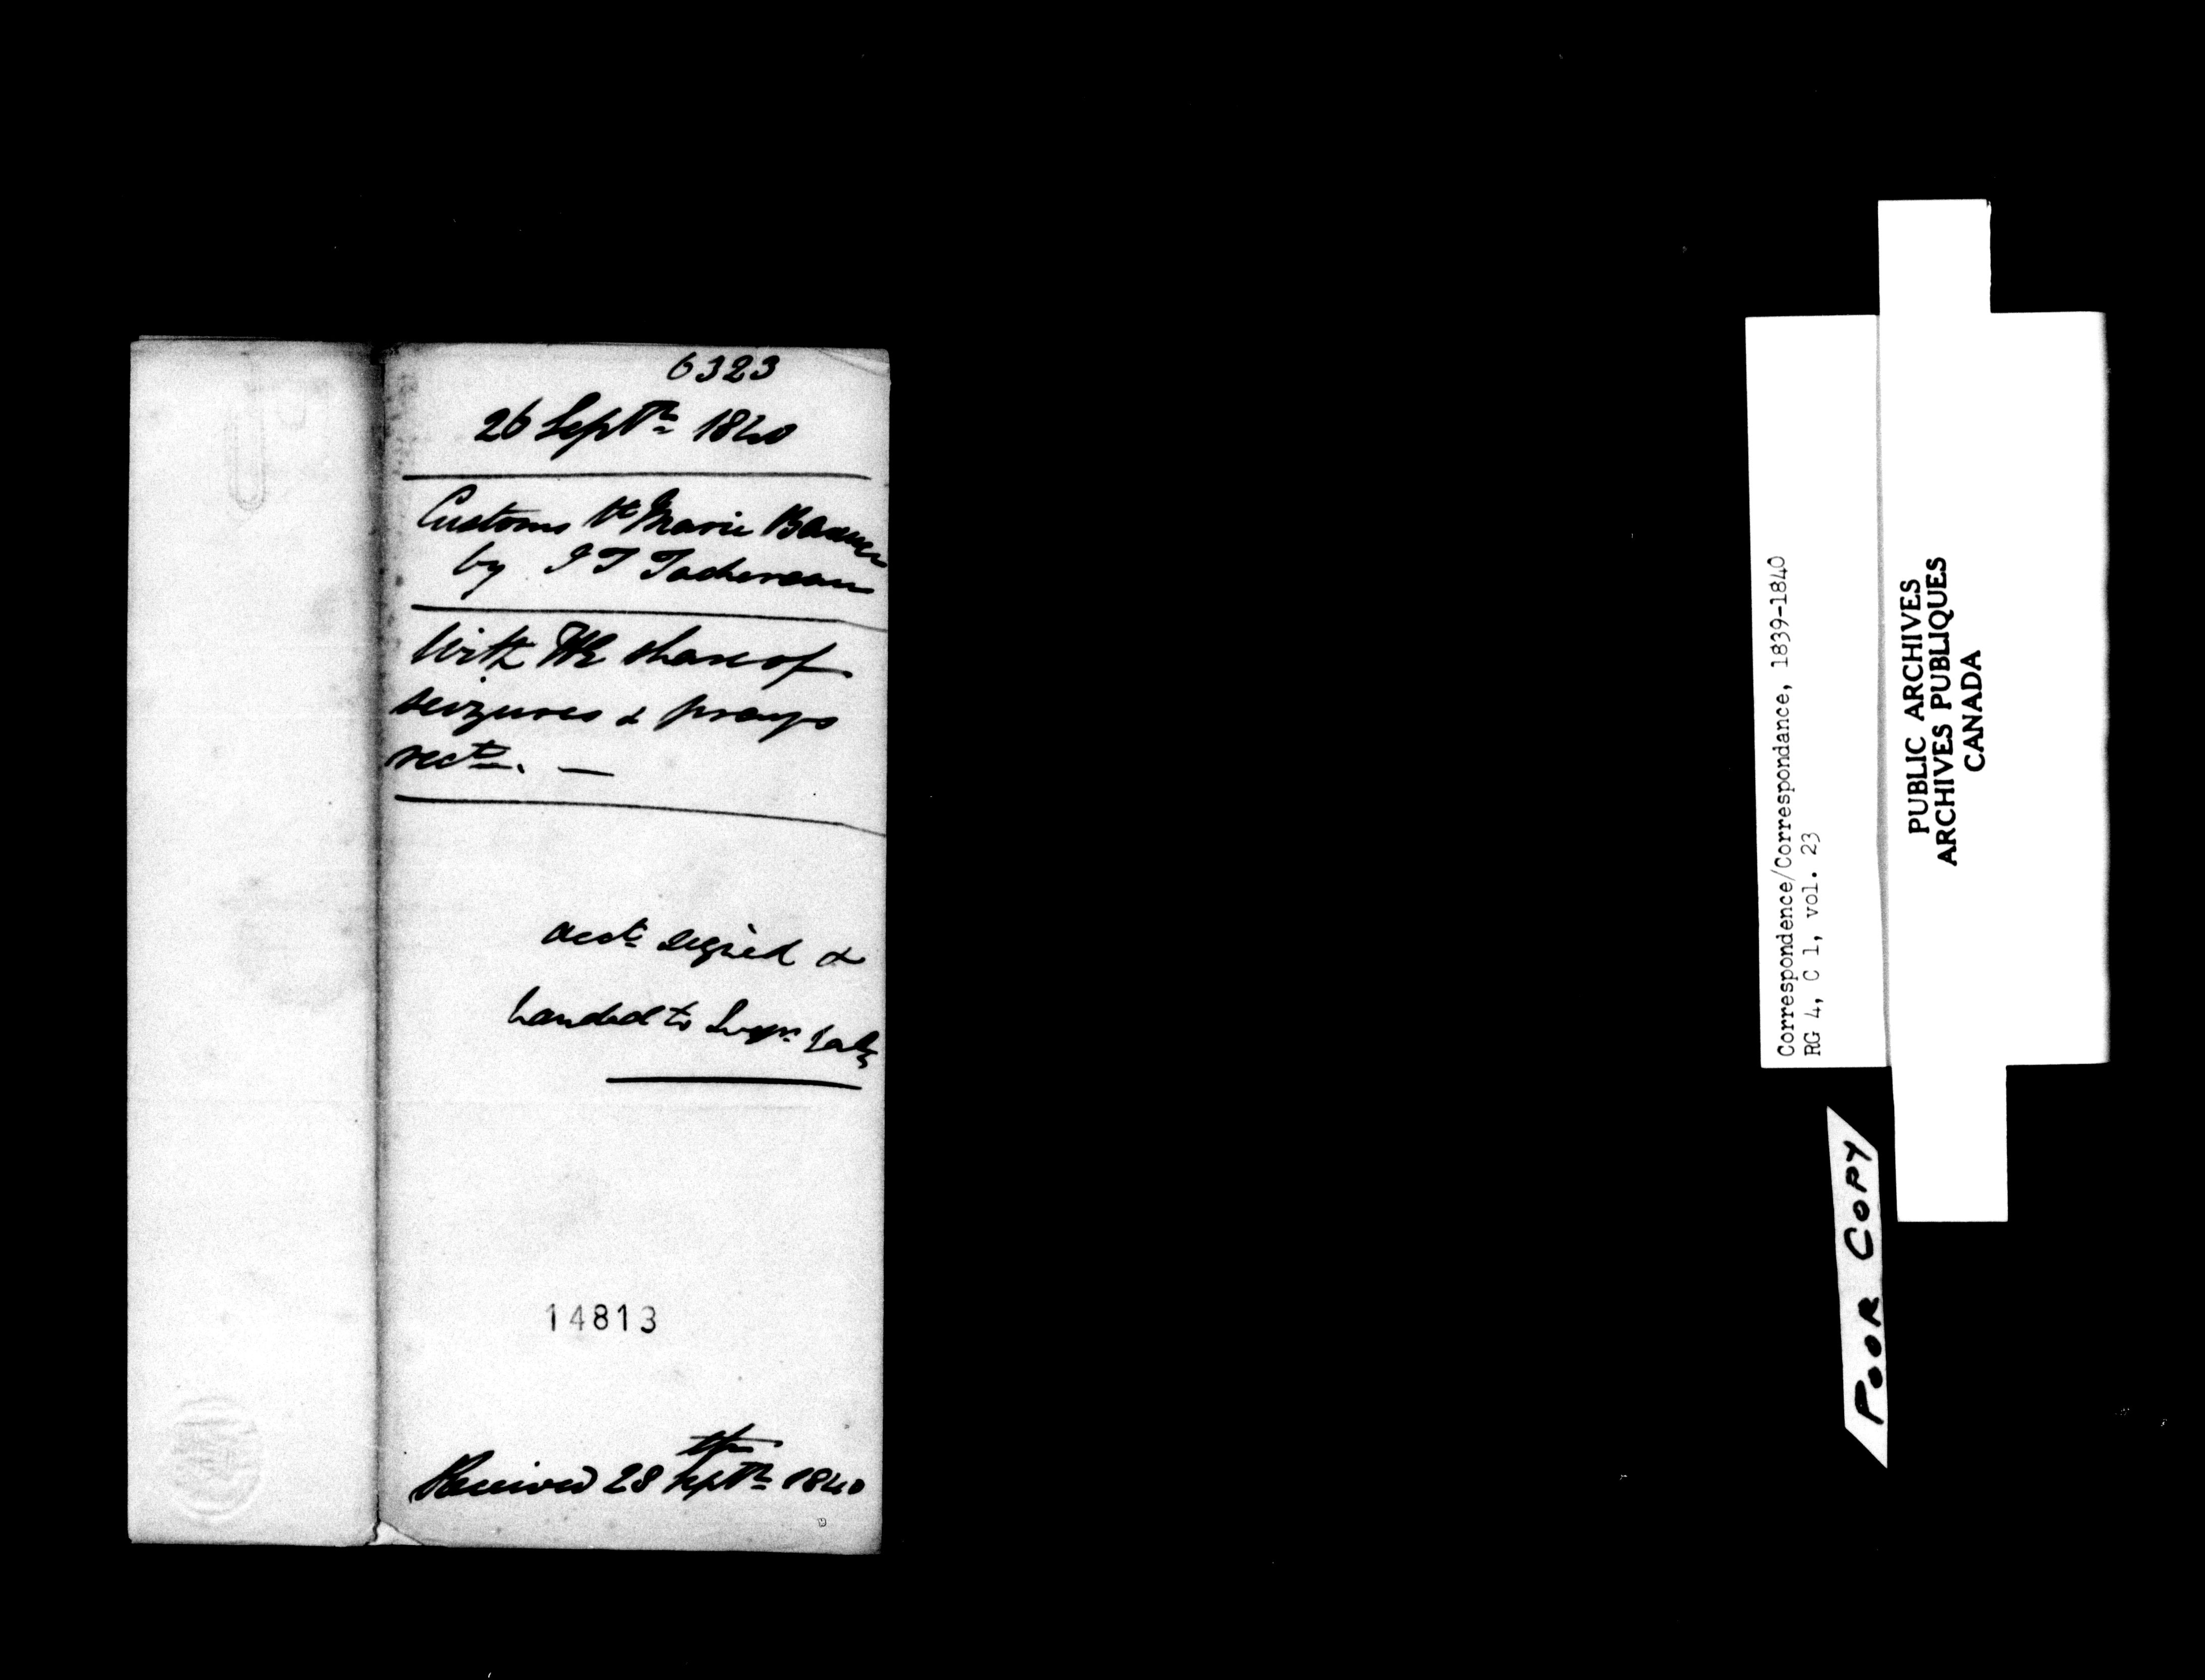 6323
26 Septr 1840
Customs St Marie Beauce
by J T Taschereau
With HE share of
seizures & prays
rect. —
acct signed &
handed to
14813
Received 28th Septr 1840
Correspondence/Correspondance, 1839-1840
RG 4, C 1, vol. 23
PUBLIC ARCHIVES
ARCHIVES PUBLIQUES
CANADA
POOR COPY